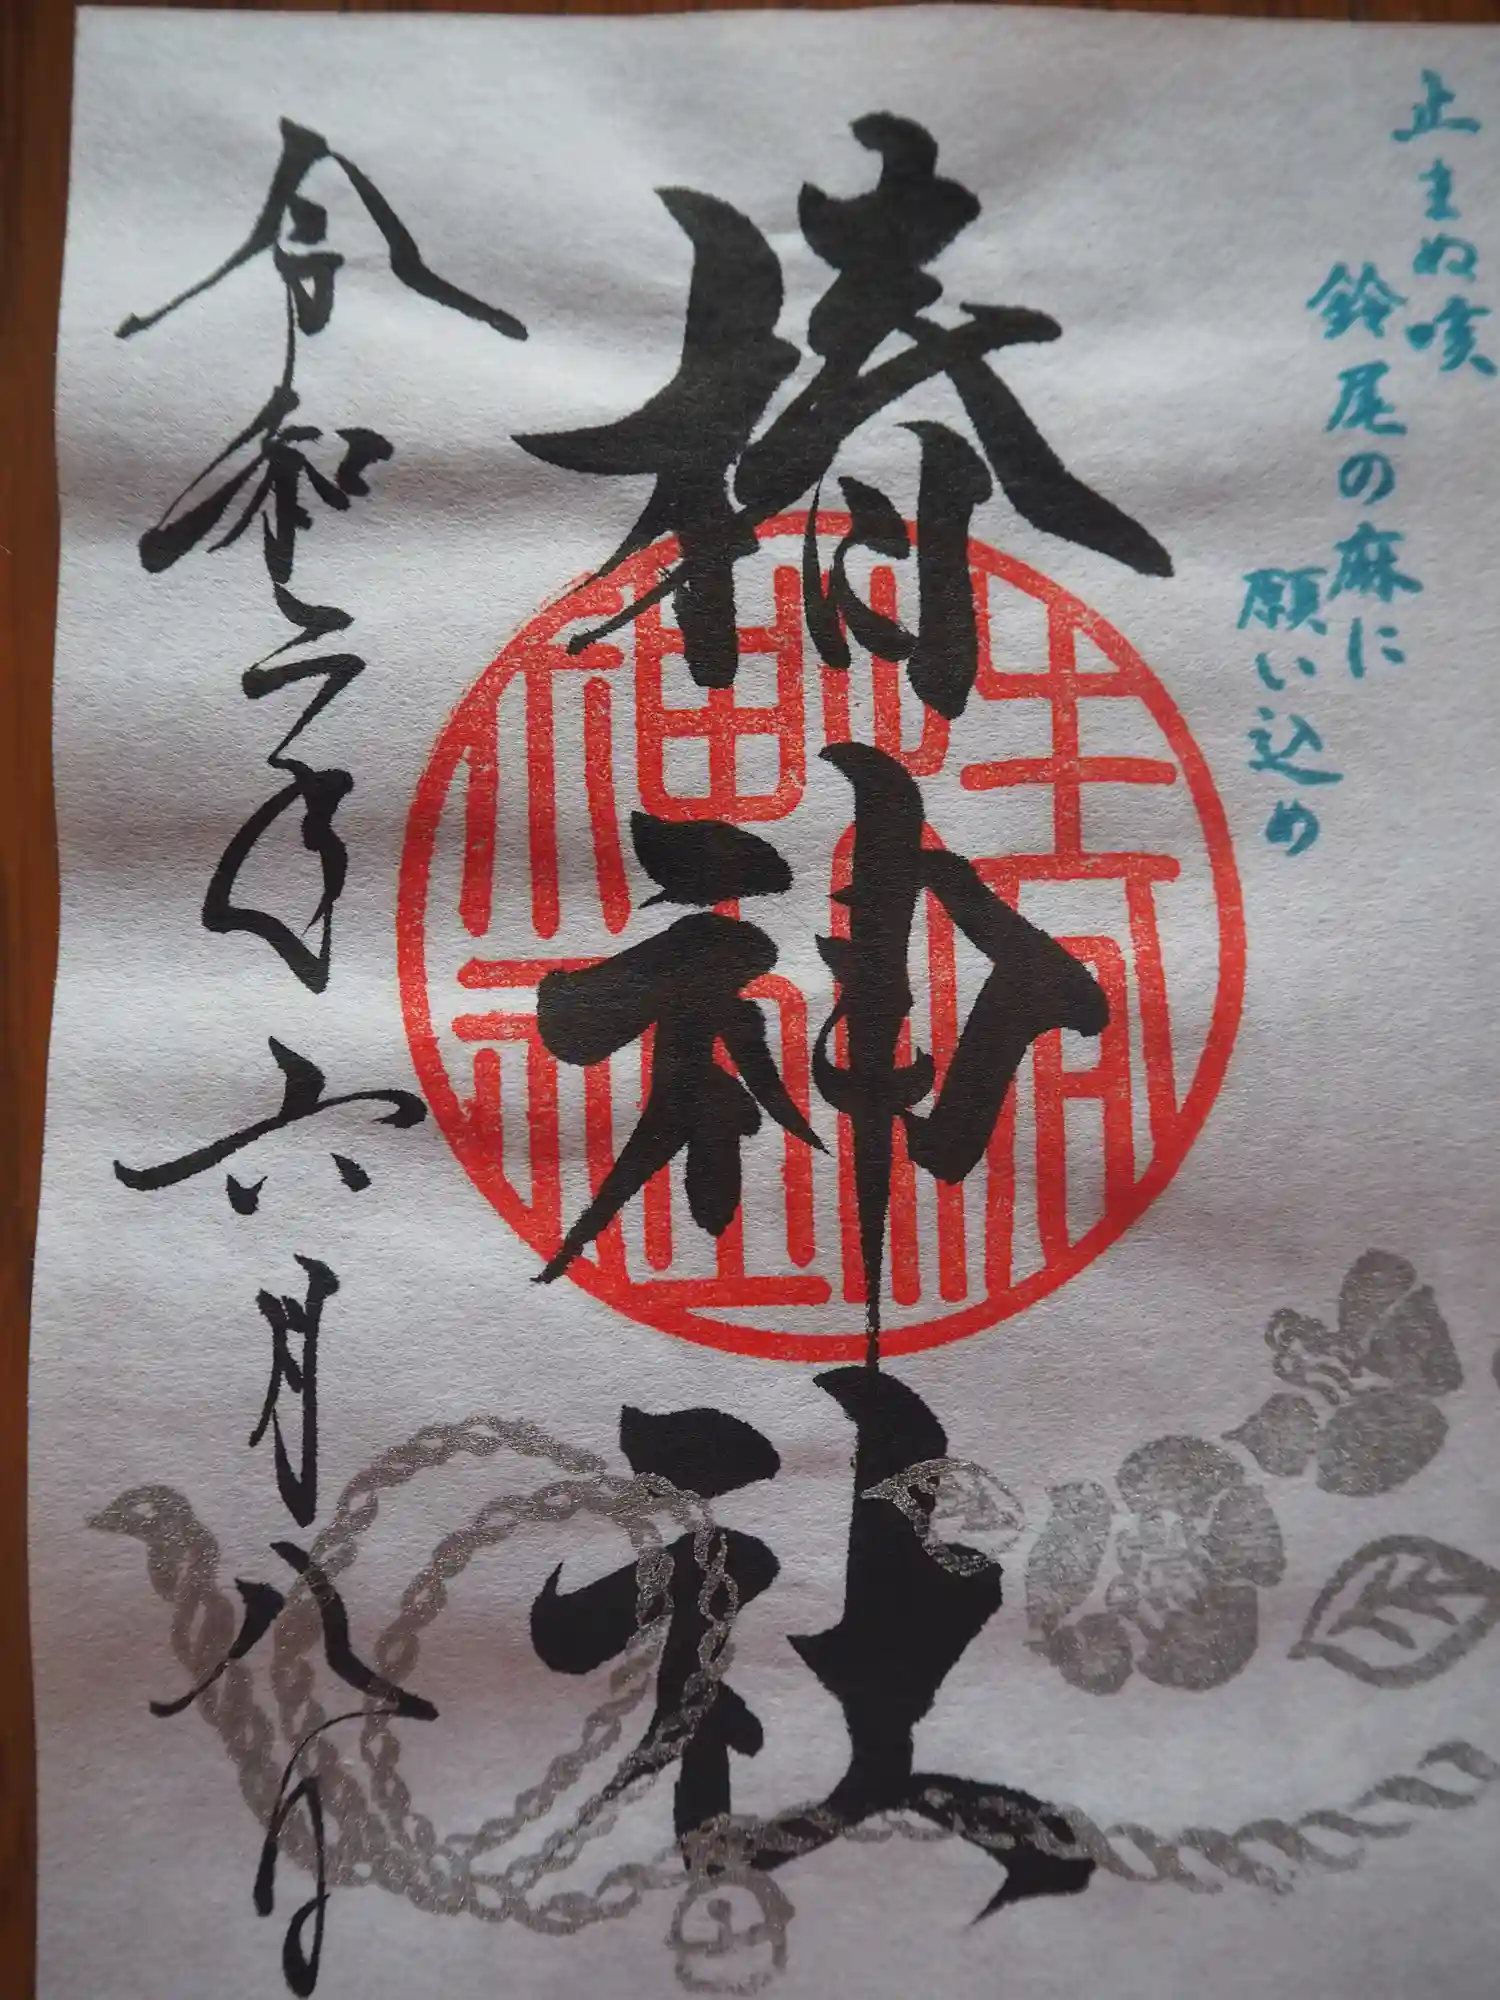 止まぬ咳
鈴尾の麻に
願い込め
椿神社
令和二年六月八日